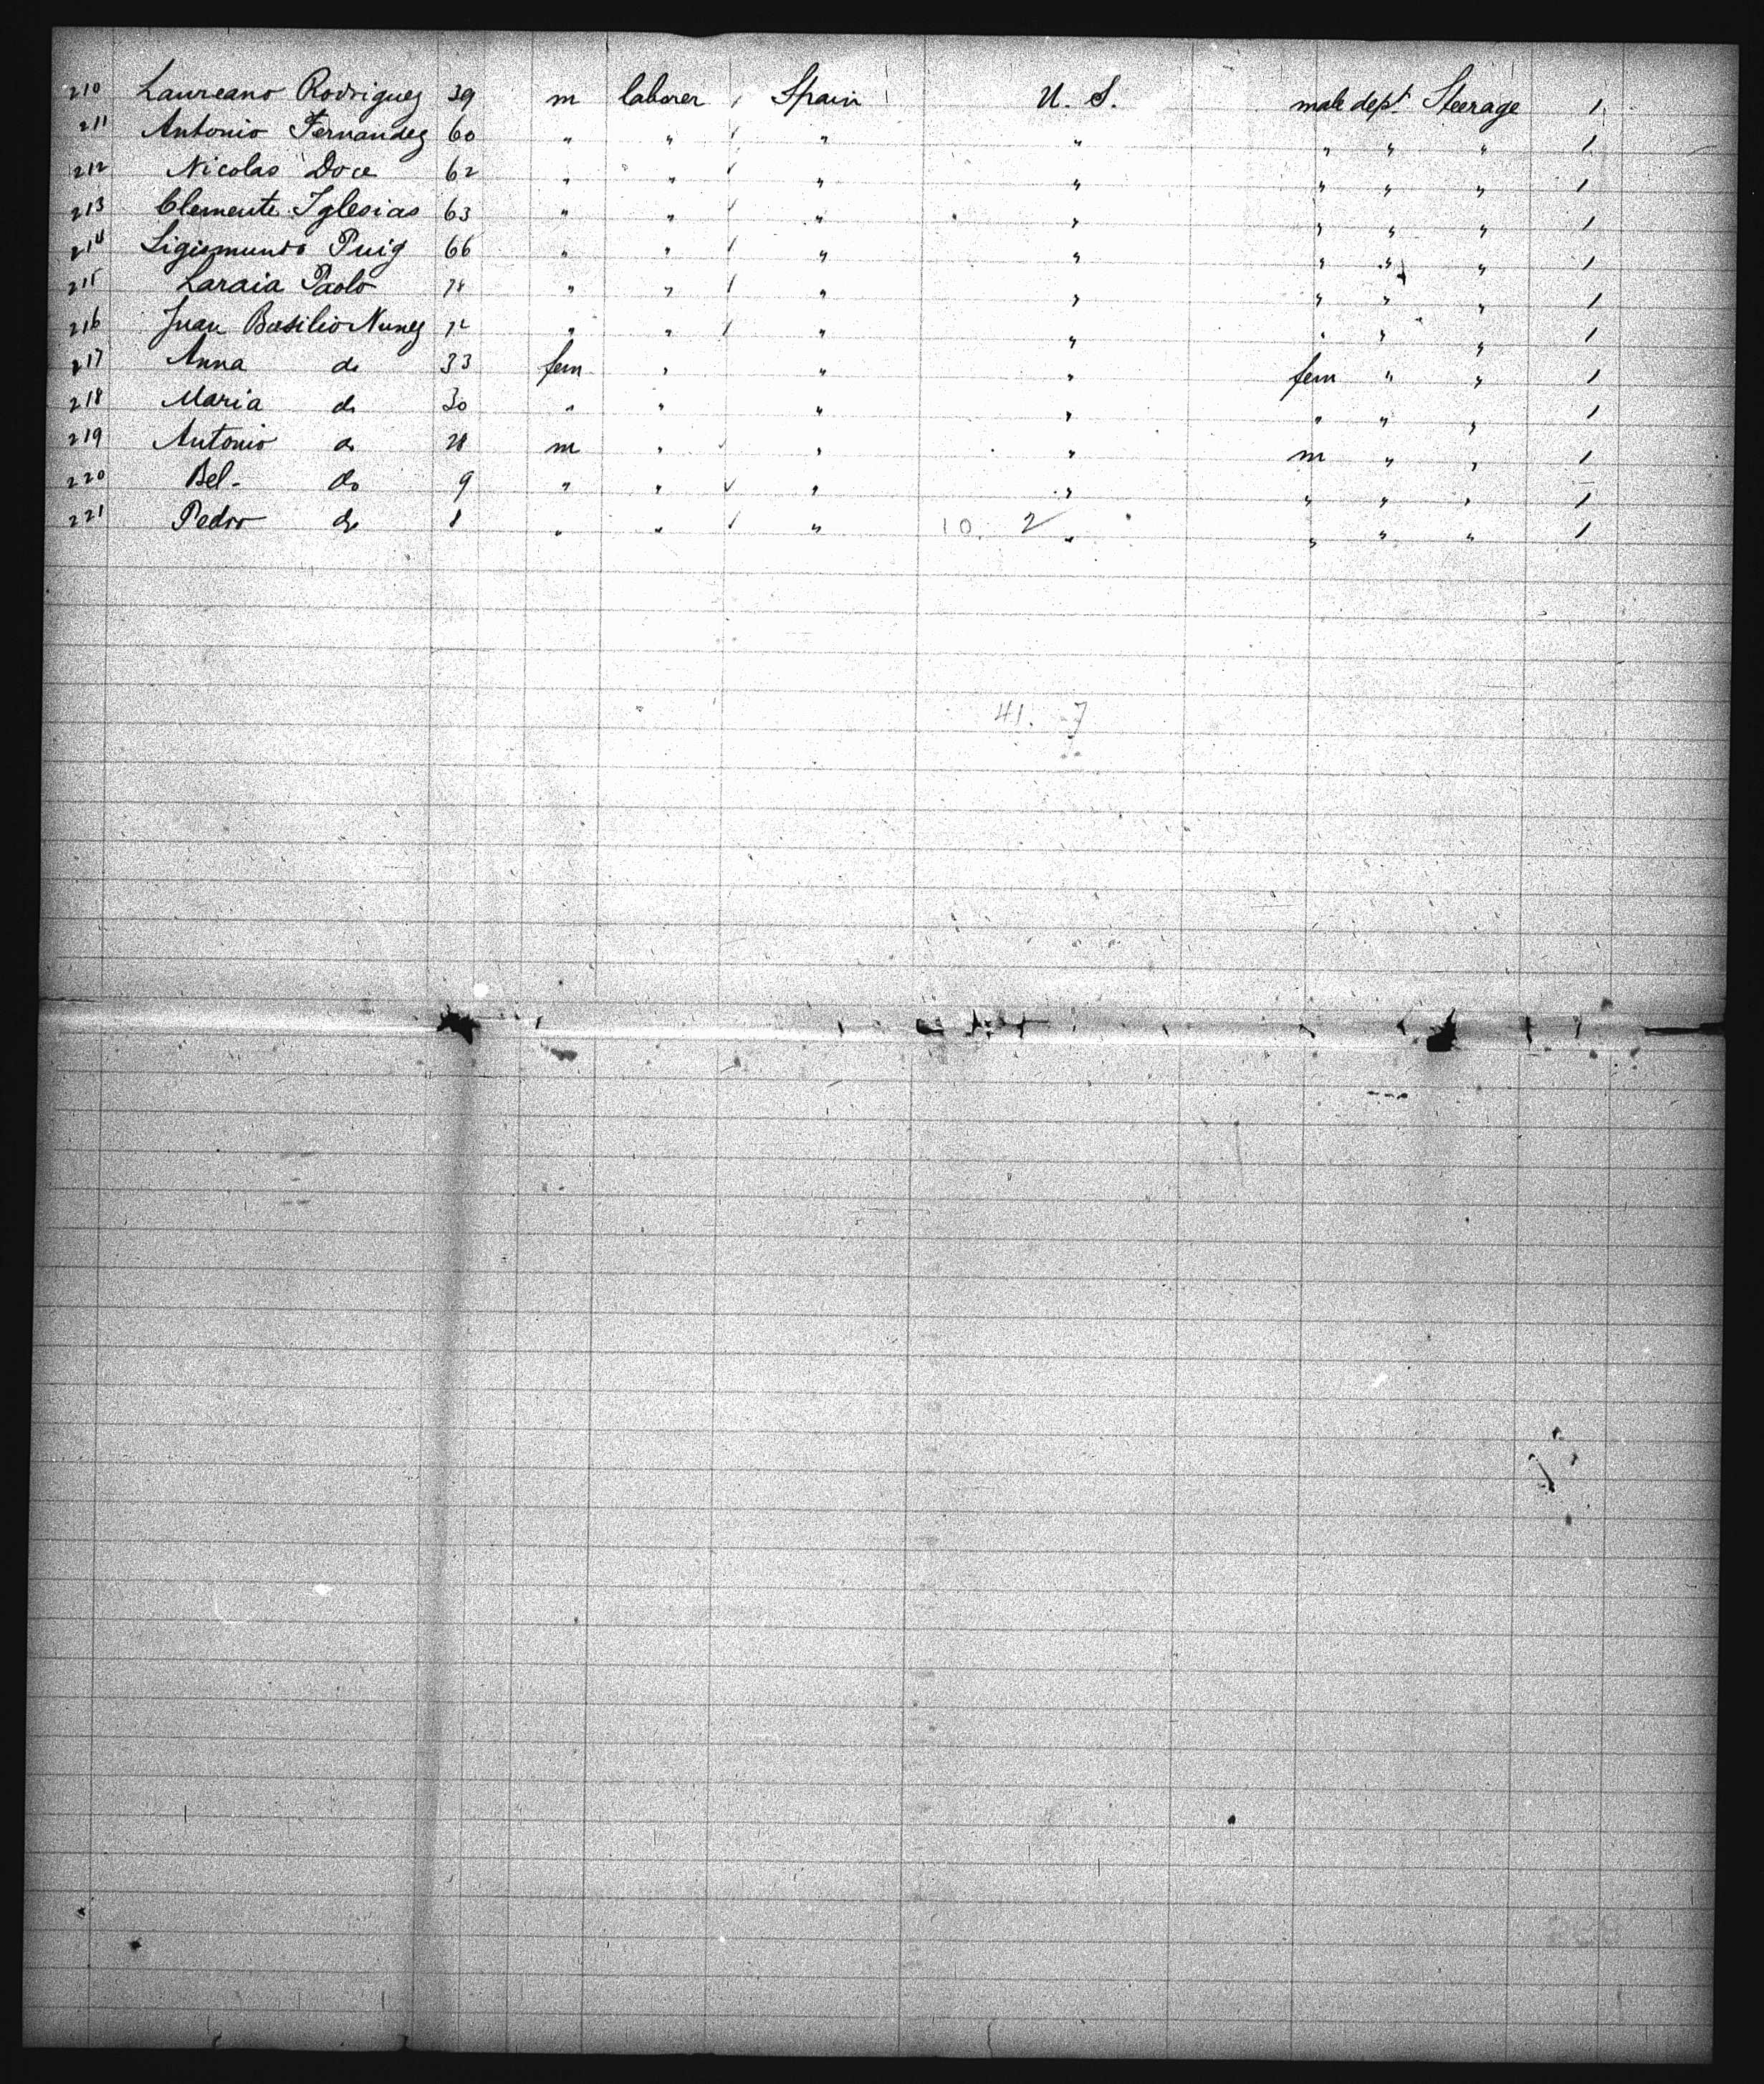 210 Laureano Rodriguez 39 m laborer / Spain U. S. male dept. Steerage 1
211 Antonio Fernandez 60 " " / " " " " " 1
212 Nicolas Doce 62 " " / " " " " " 1
213 Clemente Iglesias 63 " " / " " " " " 1
214 Sigismundo Puig 66 " " / " " " " " 1
215 Laraia Paolo " " / " " " " " 1
216 Juan Basilio Nunez " " / " " " " " 1
217 Anna do 33 fem " " " fem " " 1
218 Maria do 30 " " " " " " " 1
219 Antonio do 28 m " ✓ " " m " " 1
220 Bel- do 9 " " ✓ " " " " " 1
221 Pedro do " " / " 10. 2 " " " " 1
41. 7